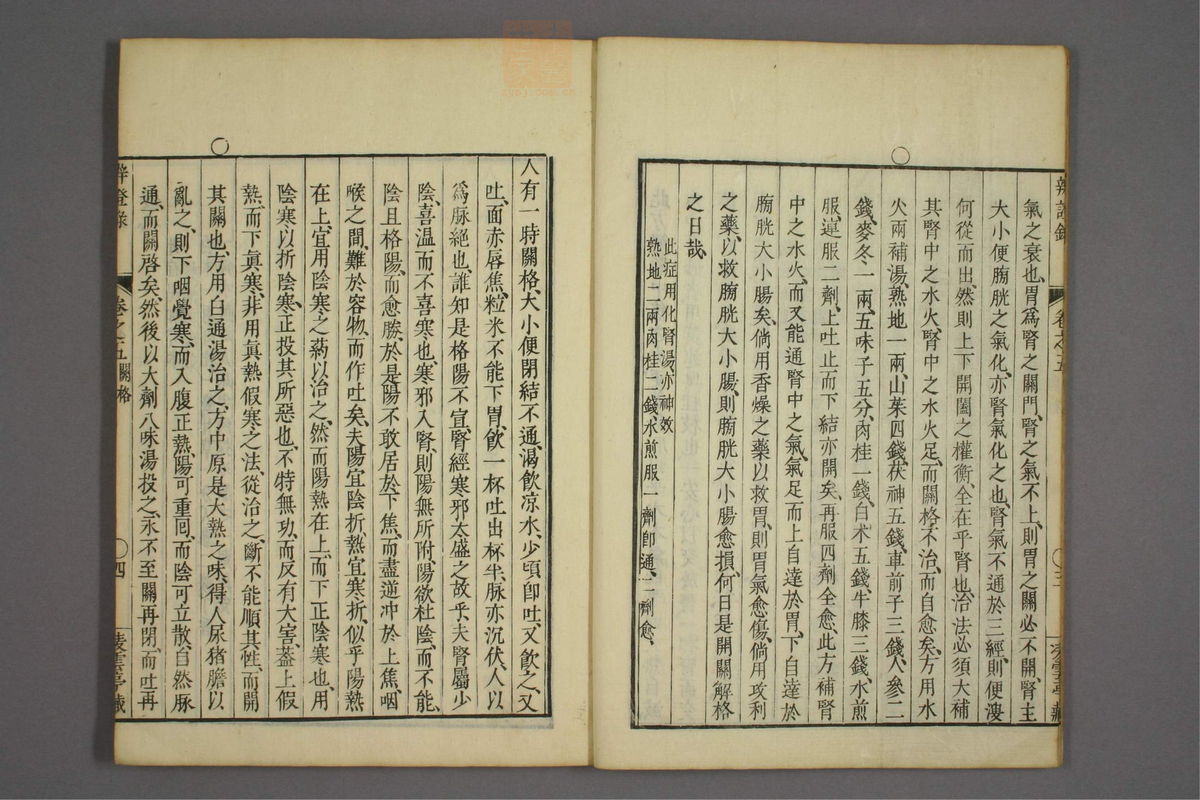 辨證錄 卷之五 〇三 凌雲亭藏
氣之衰也、胃爲腎之關門、腎之氣不上、則胃之關必不開、腎主
大小便、膀胱之氣化、亦腎氣化之也、腎氣不通於三經、則便溲
何從而出、然則上下開闔之權衡、全在乎腎也、治法必須大補
其腎中之水火、腎中之水火足、而關格不治、而自愈矣、方用水
火兩補湯、熟地一兩、山茱四錢、茯神五錢、車前子三錢、人參二
錢、麥冬一兩、五味子五分、肉桂一錢、白术五錢、牛膝三錢、水煎
服、連服二劑、上吐止而下結亦開矣、再服四劑全愈、此方補腎
中之水火、而又能通腎中之氣、氣足而上自達於胃、下自達於
膀胱大小腸矣、倘用香燥之藥以救胃、則胃氣愈傷、倘用攻利
之藥、以救膀胱大小腸、則膀胱大小腸愈損、何日是開關解格
之日哉、
此症用化腎湯、亦神效
熟地二兩肉桂二錢、水煎服一劑卽通、二劑愈、
人有一時關格、大小便閉結不通、渴飲凉水、少頃卽吐、又飲之、又
吐、面赤唇焦、粒米不能下胃、飲一杯吐出杯半、脉亦沉伏、人以
爲脉絕也、誰知是格陽不宜、腎經寒邪太盛之故乎、夫腎屬少
陰、喜温而不喜寒也、寒邪入腎、則陽無所附、陽欲杜陰、而不能、
陰且格陽、而愈勝、於是陽不敢居於下焦、而盡逆冲於上焦、咽
喉之間、難於容物、而作吐矣、夫陽宜陰折、熱宜寒折、似乎陽熱
在上、宜用陰寒之藥以治之、然而陽熱在上、而下正陰寒也、用
陰寒以折陰寒、正投其所惡也、不特無功、而反有大害、葢上假
熱、而下眞寒、非用眞熱假寒之法、從治之、斷不能順其性、而開
其關也、方用白通湯治之、方中原是大熱之味、得人尿猪膽以
亂之、則下咽覺寒、而入腹正熱、陽可重囘、而陰可立散、自然脉
通、而關啓矣、然後以大劑八味湯投之、永不至關再閉、而吐再
辨證錄 卷之五關格 〇四 凌雲亭藏